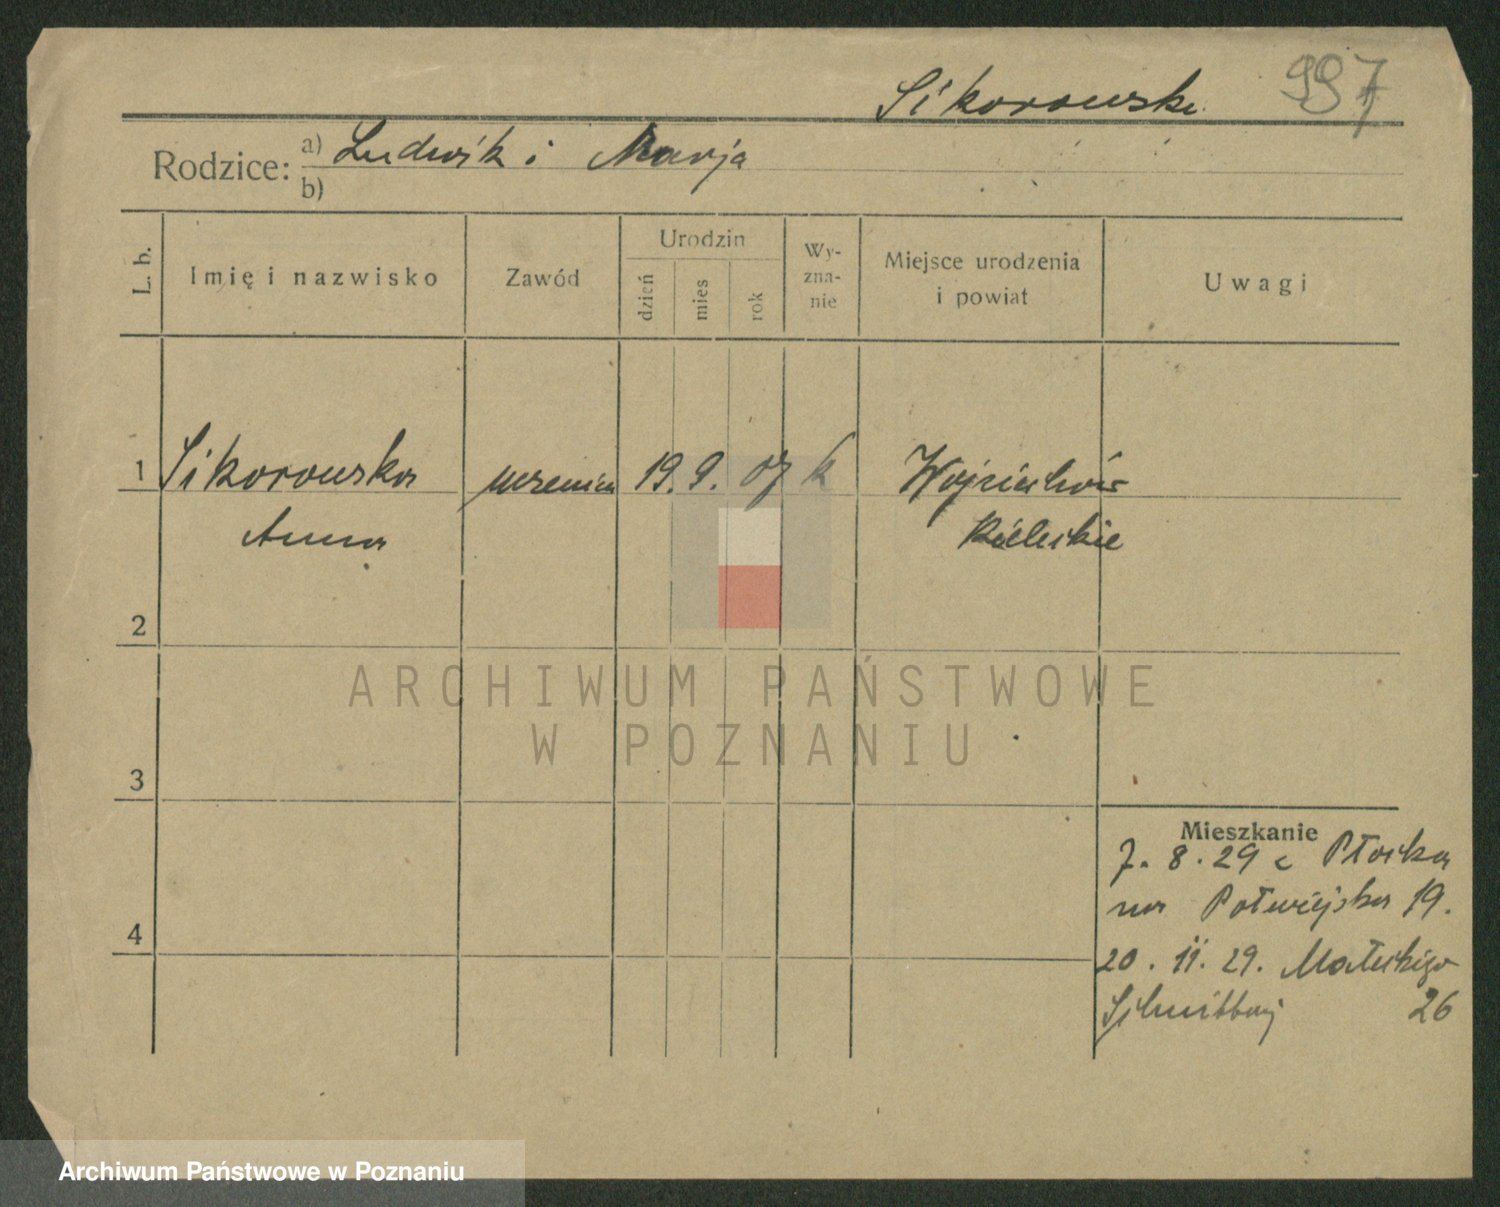 Sikorowski 997
Rodzice: a) Ludwik i Marja
b)
L. b. Imię i nazwisko Zawód Urodzin dzień mies rok Wy-zna-nie Miejsce urodzenia i powiat Uwagi
1 Sikorowska uczenica 19. 9. 07 k Wojciechów
Anna Kieleckie
2
ARCHIWUM PAŃSTWOWE
W POZNANIU
3
Mieszkanie
7. 8. 29 z Płocka
na Półwiejska 19.
4
20. 11. 29. Małeckiego
26
Archiwum Państwowe w Poznaniu